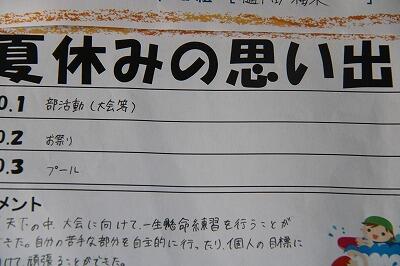 夏休みの思い出
O.1 部活動(大会等)
O.2 お祭り
O.3 プール
メント
天下の中、大会に向けて、一生懸命練習を行うことが
きた。自分の苦手な部分を自主的に行ったり、個人の目標に
向けて頑張ることができた。